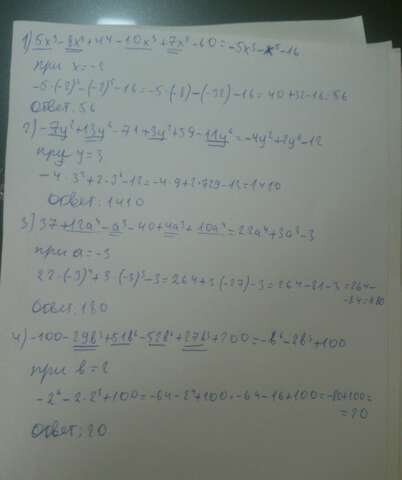 1) 5x³-8x⁵+44-10x³+7x⁵-60=-5x³-x⁵-16
при x=-2
-5·(-2)³-(-2)⁵-16=-5·(-8)-(-32)-16=40+32-16=56
Ответ: 56
2) -7y²+13y⁶-71+3y²+59-11y⁶=-4y²+2y⁶-12
при y=3
-4·3²+2·3⁶-12=-4·9+2·729-12=1410
Ответ: 1410
3) 37+12a⁴-a³-40+4a³+10a⁴=22a⁴+3a³-3
при a=-3
22·(-3)⁴+3·(-3)³-3=264+3·(-27)-3=264-81-3=264-
-84=180
Ответ: 180
4) -100-29b³+51b⁶-52b⁶+27b³+200=-b⁶-2b³+100
при b=2
-2⁶-2·2³+100=-64-2⁴+100=-64-16+100=-80+100=
=20
Ответ: 20